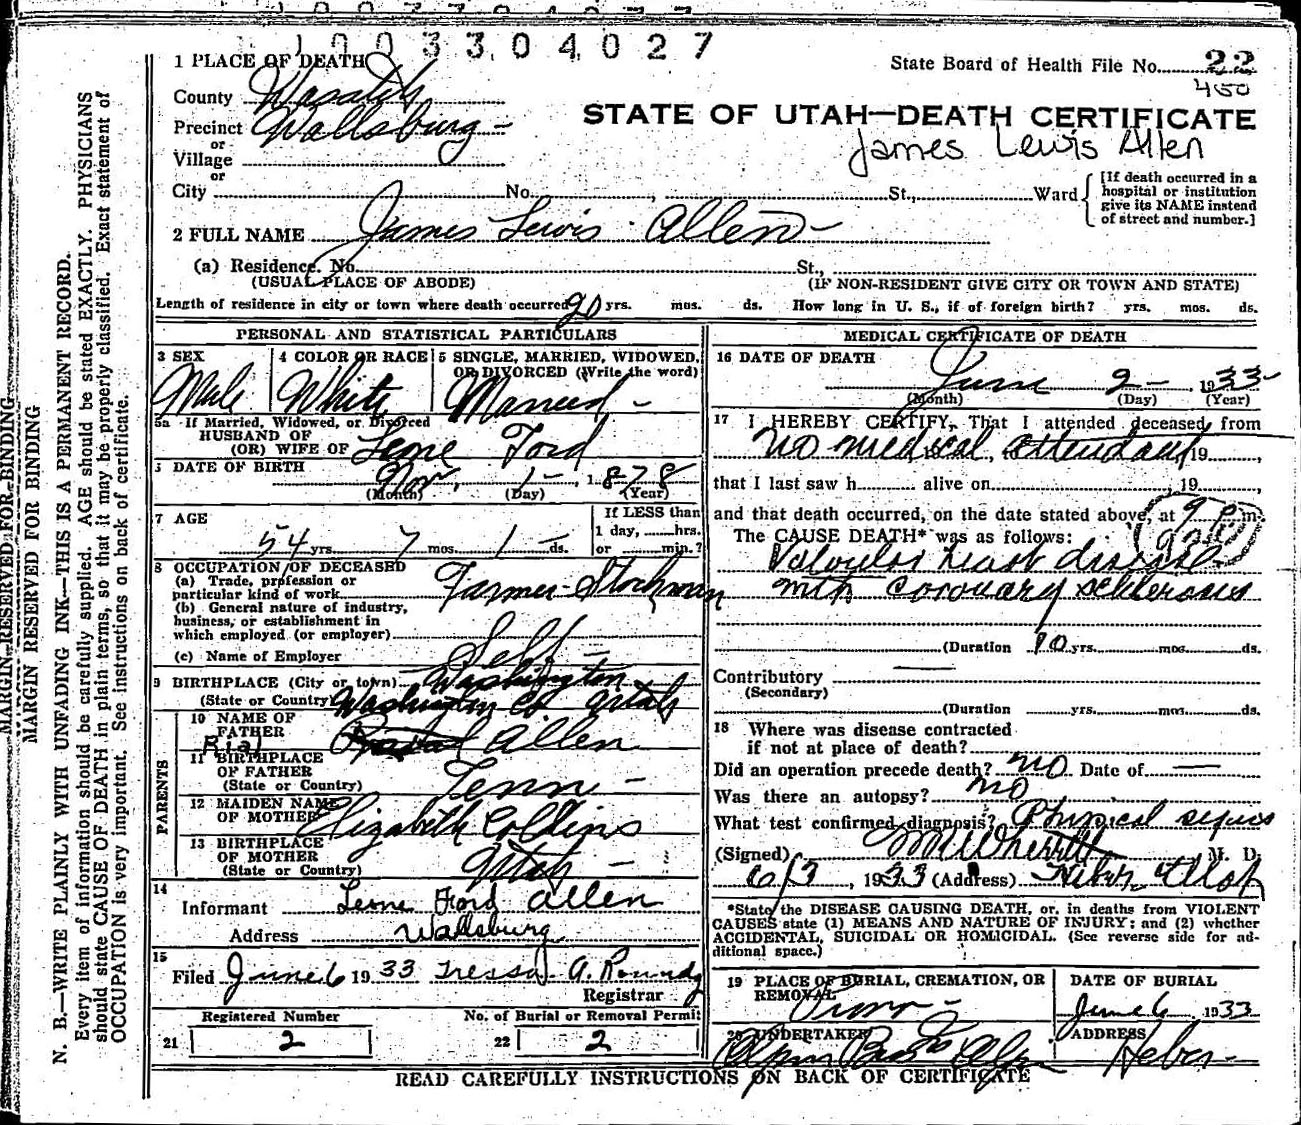 1003304027
1 PLACE OF DEATH
State Board of Health File No. 22
450
County Wasatch
STATE OF UTAH—DEATH CERTIFICATE
Precinct Wallsburg -
James Lewis Allen
or
Village
or
City No. , St., Ward
[If death occurred in a
hospital or institution
give its NAME instead
of street and number.]
2 FULL NAME James Lewis Allen -
(a) Residence. No. St.,
(USUAL PLACE OF ABODE) (IF NON-RESIDENT GIVE CITY OR TOWN AND STATE)
Length of residence in city or town where death occurred 20 yrs. mos. ds. How long in U. S., if of foreign birth? yrs. mos. ds.
PERSONAL AND STATISTICAL PARTICULARS
3 SEX
Male
4 COLOR OR RACE
White
5 SINGLE, MARRIED, WIDOWED,
OR DIVORCED (Write the word)
Married -
5a If Married, Widowed, or Divorced
HUSBAND OF
(OR) WIFE OF Leone Ford
DATE OF BIRTH Nov. 1 - , 1878
(Month) (Day) (Year)
7 AGE
54 yrs. 7 mos. 1 - ds.
If LESS than
1 day, hrs.
or min.?
8 OCCUPATION OF DECEASED
(a) Trade, profession or
particular kind of work Farmer - Stockman
(b) General nature of industry,
business, or establishment in
which employed (or employer)
(c) Name of Employer Self -
9 BIRTHPLACE (City or town) Washington
(State or Country) Washington Co Utah
PARENTS
10 NAME OF
FATHER Rial Allen
11 BIRTHPLACE
OF FATHER
(State or Country) Tenn -
12 MAIDEN NAME
OF MOTHER Elizabeth Collins
13 BIRTHPLACE
OF MOTHER
(State or Country) Utah -
14
Informant Leone Ford Allen
Address Wallsburg
15
Filed June 6 1933 Tressa A.
Registrar
Registered Number No. of Burial or Removal Permit
21 2 22 2
MEDICAL CERTIFICATE OF DEATH
16 DATE OF DEATH
June 2 - , 1933 -
(Month) (Day) (Year)
17 I HEREBY CERTIFY, That I attended deceased from
no medical attendant , 19 ,
that I last saw h alive on , 19 ,
and that death occurred, on the date stated above, at 9 P m.
The CAUSE DEATH* was as follows:
Valvular heart disease
with coronary sclerosus
(Duration 10 yrs. mos. ds.
Contributory
(Secondary)
(Duration yrs. mos. ds.
18 Where was disease contracted
if not at place of death?
Did an operation precede death? no Date of —
Was there an autopsy? no
What test confirmed diagnosis? Physical signs
(Signed) M. D.
6/3 , 1933 (Address) Heber Utah
*State the DISEASE CAUSING DEATH, or, in deaths from VIOLENT
CAUSES state (1) MEANS AND NATURE OF INJURY; and (2) whether
ACCIDENTAL, SUICIDAL OR HOMICIDAL. (See reverse side for ad-
ditional space.)
19 PLACE OF BURIAL, CREMATION, OR
REMOVAL
Provo -
DATE OF BURIAL
June 6 , 1933
20 UNDERTAKER
ADDRESS
Heber -
READ CAREFULLY INSTRUCTIONS ON BACK OF CERTIFICATE
MARGIN RESERVED FOR BINDING
MARGIN RESERVED FOR BINDING
N. B.—WRITE PLAINLY WITH UNFADING INK—THIS IS A PERMANENT RECORD.
Every item of information should be carefully supplied. AGE should be stated EXACTLY. PHYSICIANS
should state CAUSE OF DEATH in plain terms, so that it may be properly classified. Exact statement of
OCCUPATION is very important. See instructions on back of certificate.